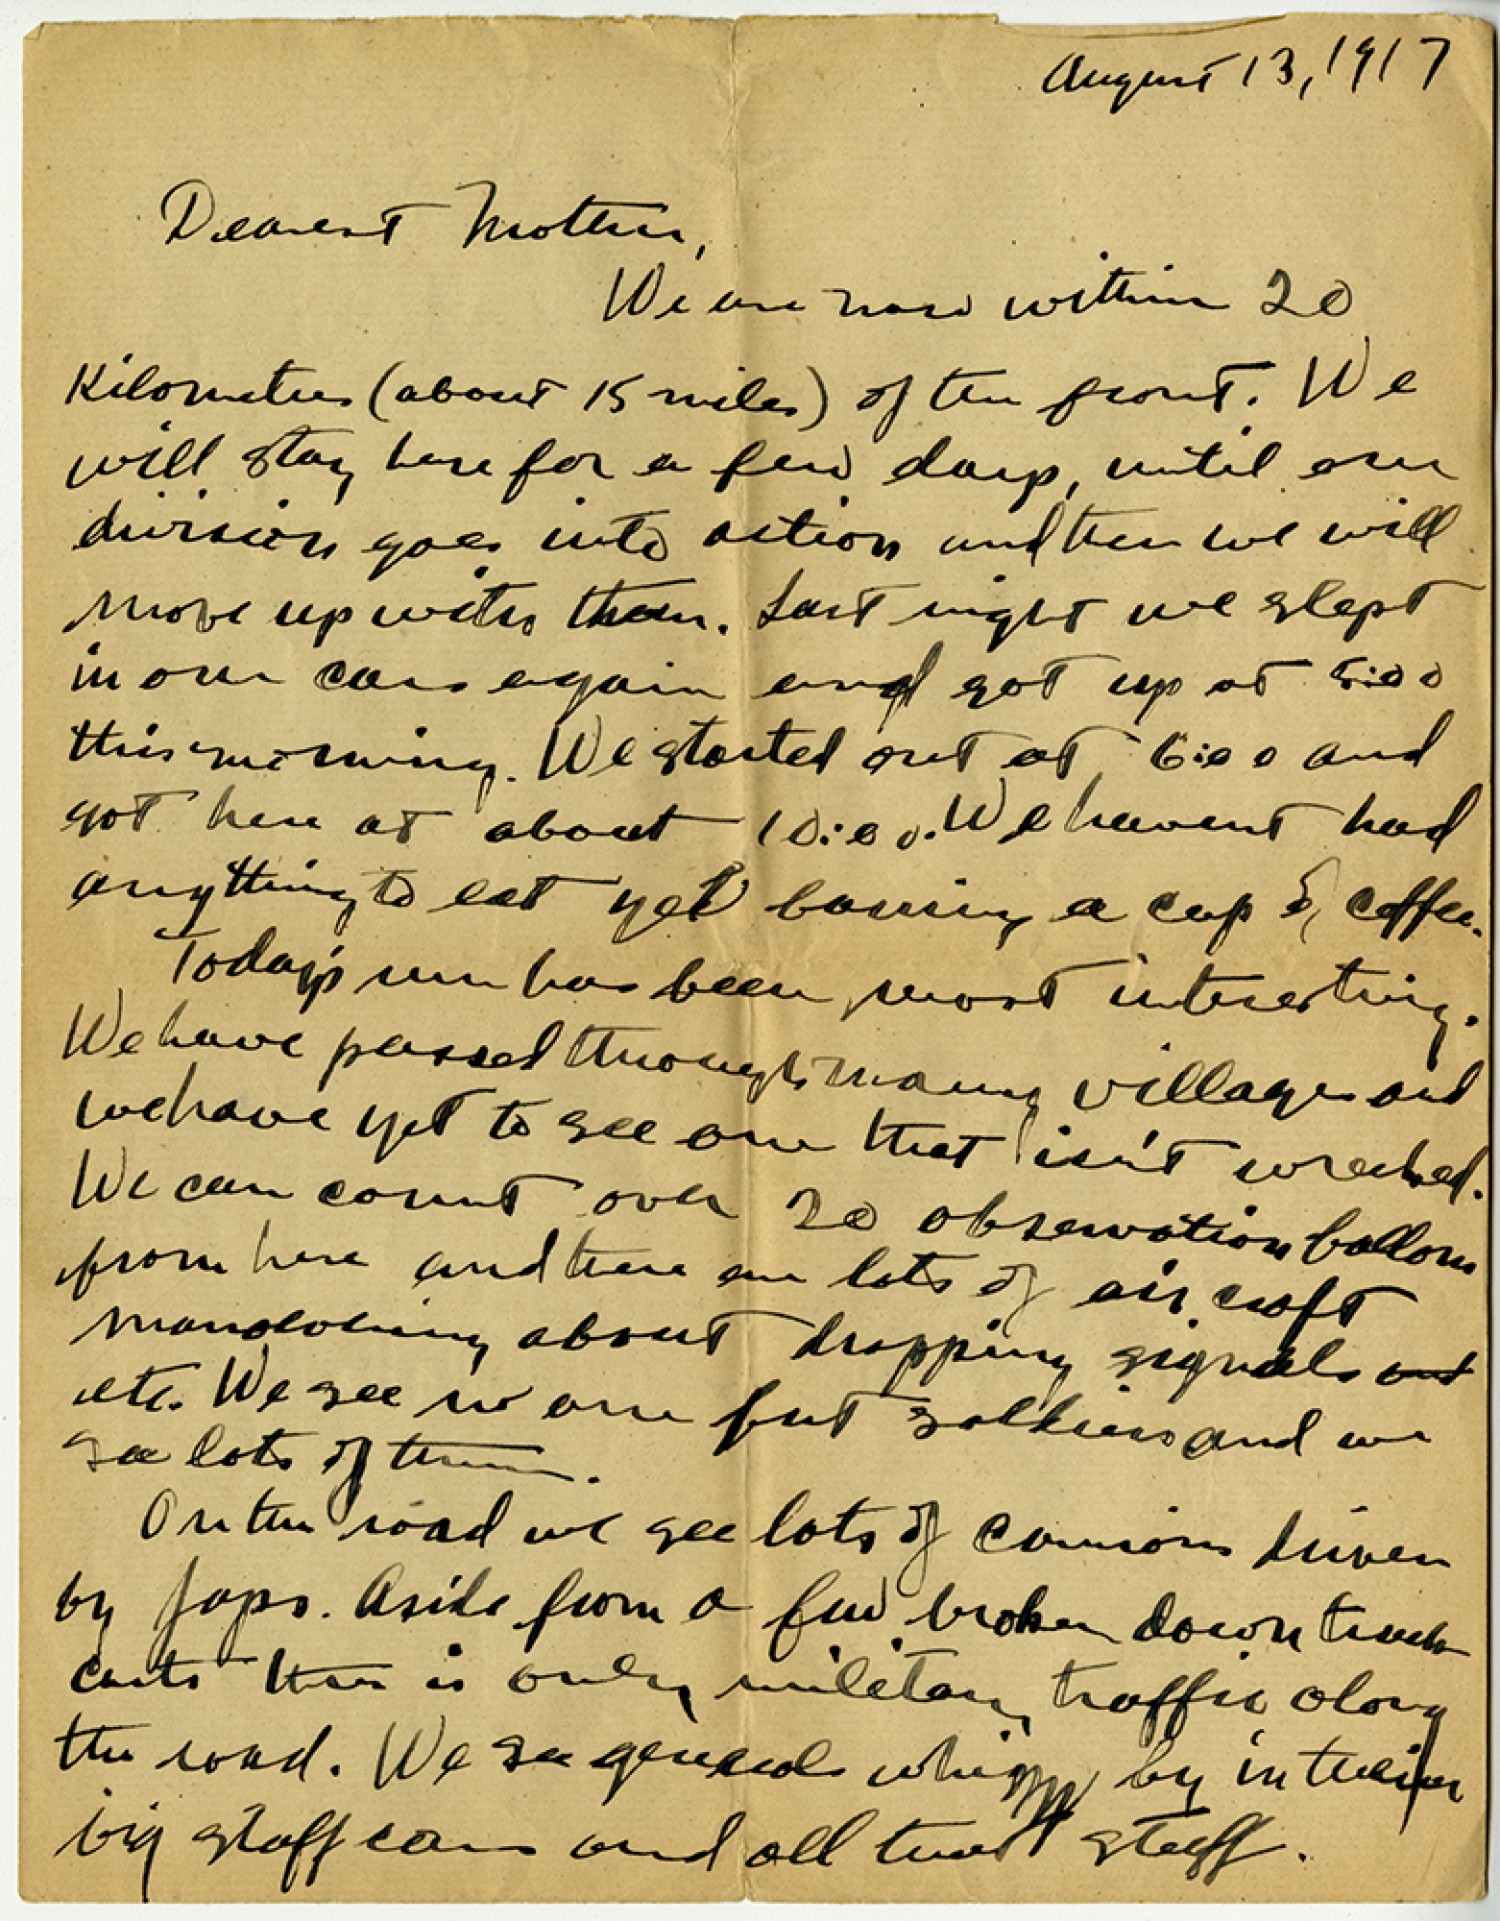 August 13, 1917
Dearest Mother,
We are now within 20
Kilometers (about 15 miles) of the front. We
will stay here for a few days, until our
division goes into action and then we will
move up with them. Last night we slept
in our cars again and got up at 5:00
this morning. We started out at 6:00 and
got here at about 10:00. We havent had
anything to eat yet barring a cup of coffee.
Today's run has been most interesting.
We have passed through many villages and
we have yet to see one that isn't wrecked.
We can count over 20 observation balloons
from here and there are lots of air craft
manoevering about dropping signals and
etc. We see no one but soldiers and we
see lots of them.
On the road we see lots of camions driven
by Japs. Aside from a few broken down truck
carts there is only military traffic along
the road. We see generals whizz by in their
big staff cars and all that stuff.